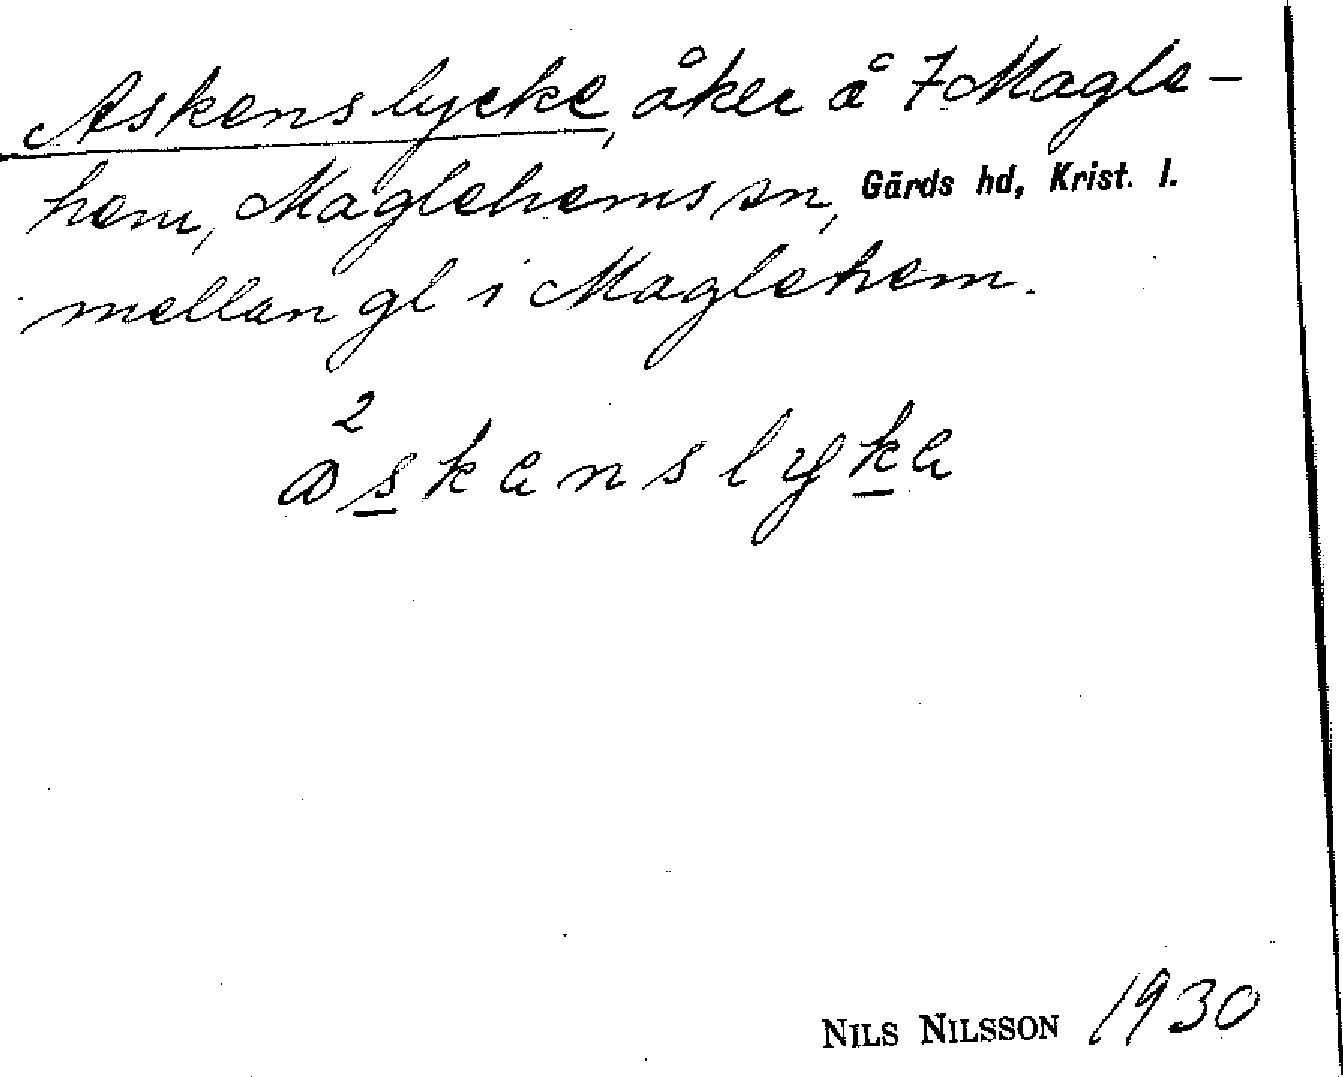 Askenslycke, åker å 7 Magle-
hem, Maglehems sn, Gärds hd, Krist. l.
mellan gl i Maglehem.
2
askanslyka
NILS NILSSON 1930